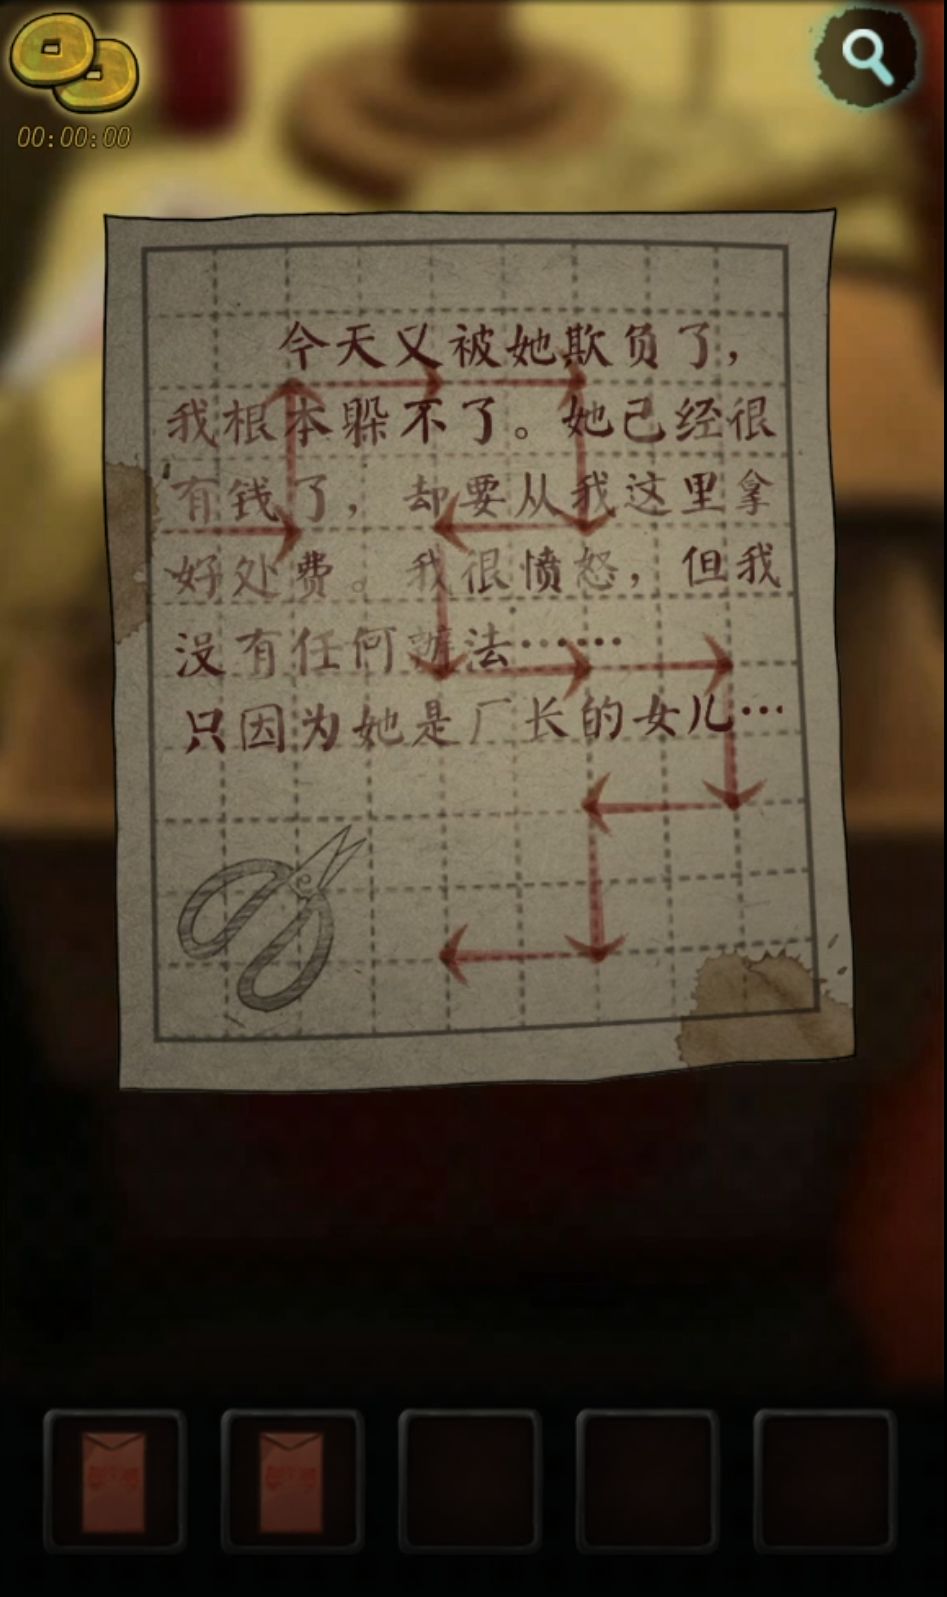 00:00:00
今天又被她欺负了，
我根本躲不了。她已经很
有钱了，却要从我这里拿
好处费。我很愤怒，但我
没有任何办法……
只因为她是厂长的女儿…